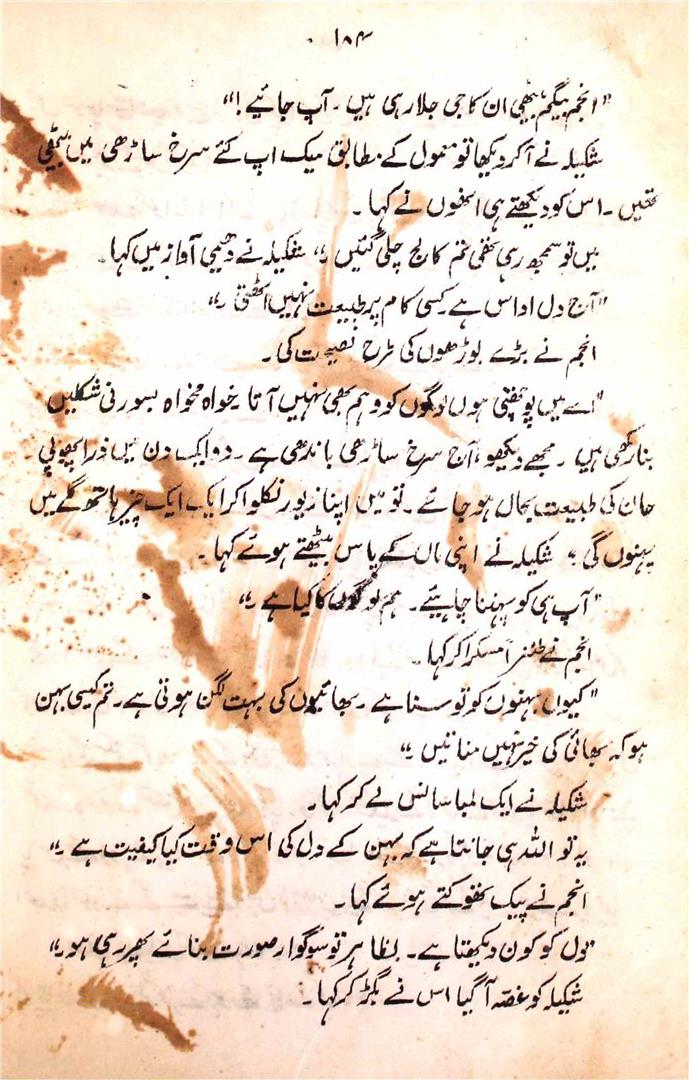 ۱۸۴
"انجم بیگم بیٹھی ان کا جی جلا رہی ہیں ۔ آپ جائیے!"
شکیلہ نے آکر دیکھا تو معمول کے مطابق میک اپ کئے سرخ ساڑھی میں بیٹھی
تھیں ۔ اس کو دیکھتے ہی انھوں نے کہا ۔
میں تو سمجھ رہی تھی تم کالج چلی گئیں ۔" شکیلہ نے دھیمی آواز میں کہا ۔
"آج دل اداس ہے ۔ کسی کام پر طبیعت نہیں اٹھتی ۔"
انجم نے بڑے بوڑھوں کی طرح نصیحت کی ۔
"اے میں پوچھتی ہوں لوگوں کو وہم بھی نہیں آتا ۔ خواہ مخواہ بسورنی شکلیں
بنا رکھی ہیں ۔ مجھے دیکھو ، آج سرخ ساڑھی باندھی ہے ۔ دو ایک دن میں ذرا چھوٹی
خان کی طبیعت بحال ہو جائے ۔ تو میں اپنا زیور نکلوا کر ایک ایک چیز ہاتھ گلے میں
پہنوں گی ۔" شکیلہ نے اپنی ماں کے پاس بیٹھتے ہوئے کہا ۔
"آپ ہی کو پہننا چاہیئے ۔ ہم لوگوں کا کیا ہے ۔"
انجم نے طنزاً مسکرا کر کہا ۔
"کیوں بہنوں کو تو سنا ہے ۔ بھائیوں کی بہت لگن ہوتی ہے ۔ تم کیسی بہن
ہو کہ بھائی کی خیر نہیں مناتیں ۔"
شکیلہ نے ایک لمبا سانس لے کر کہا ۔
یہ تو اللہ ہی جانتا ہے کہ بہن کے دل کی اس وقت کیا کیفیت ہے ۔"
انجم نے پیک تھوکتے ہوئے کہا ۔
"دل کو کون دیکھتا ہے ۔ بظاہر تو سوگوار صورت بنائے پھر رہی ہو ۔"
شکیلہ کو غصہ آگیا اس نے بگڑ کر کہا ۔